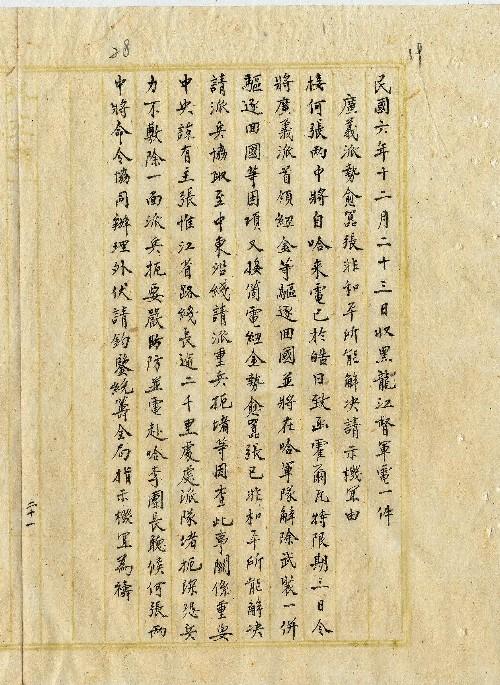 28
19
民國六年十二月二十三日收黑龍江督軍電一件
廣義派勢愈囂張非和平所能解决請示機宜由
接何張两中將自哈来電已於皓日致函霍爾瓦特限期三日令
將廣義派首領紐金等驅逐回國並將在哈軍隊解除武裝一併
驅逐回國等因項又接簡電紐金勢愈囂張已非和平所能解决
請派兵協助至中東沿綫請派重兵扼堵等因查此事關係重要
中央諒有主張惟江省路綫長逾二千里處處派隊堵扼深恐兵
力不敷除一面派兵扼要嚴防並電赴哈李團長聽候何張两
中將命令協同辦理外伏請鈞鑒統籌全局指示機宜為禱
二十一